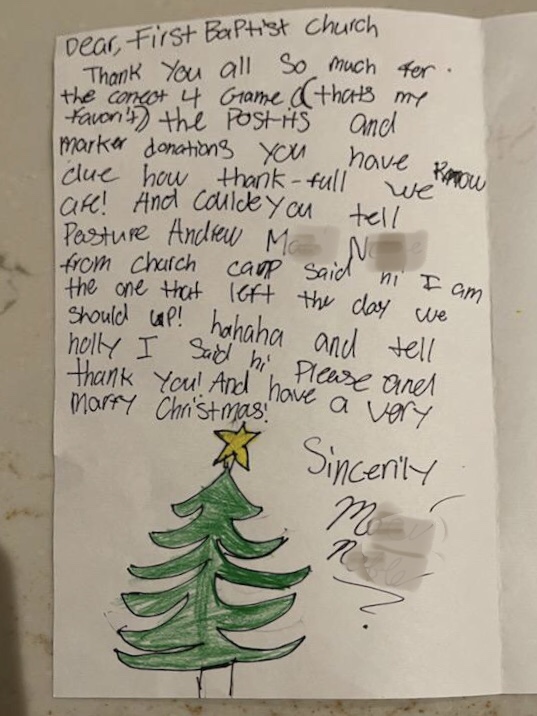 Dear, First Baptist Church
Thank You all so much for
the conect 4 Game (thats my
favorit) the Post-its and
marker donations you have know
clue how thank-full we
are! And Coulde you tell
Pasture Andrew M N
from church camp said hi I am
the one that left the day we
should up! hahaha and tell
holly I said hi Please and
thank You! And have a very
marry Christmas!
Sincerily
M
N